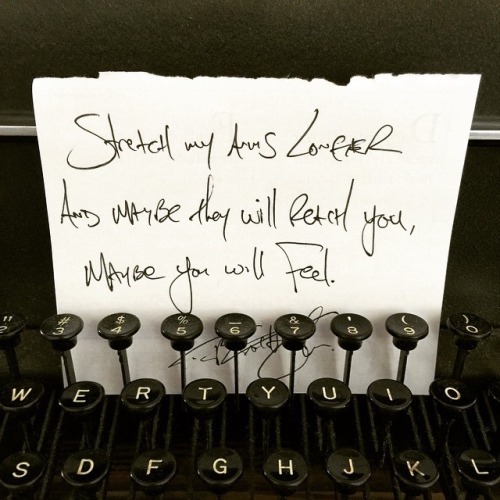 Stretch my Arms Longer
And maybe they will Reach you,
Maybe you will Feel.
" # $ % _ & ' ( )
2 3 4 5 6 7 8 9 0
W E R T Y U I O
S D F G H J K L